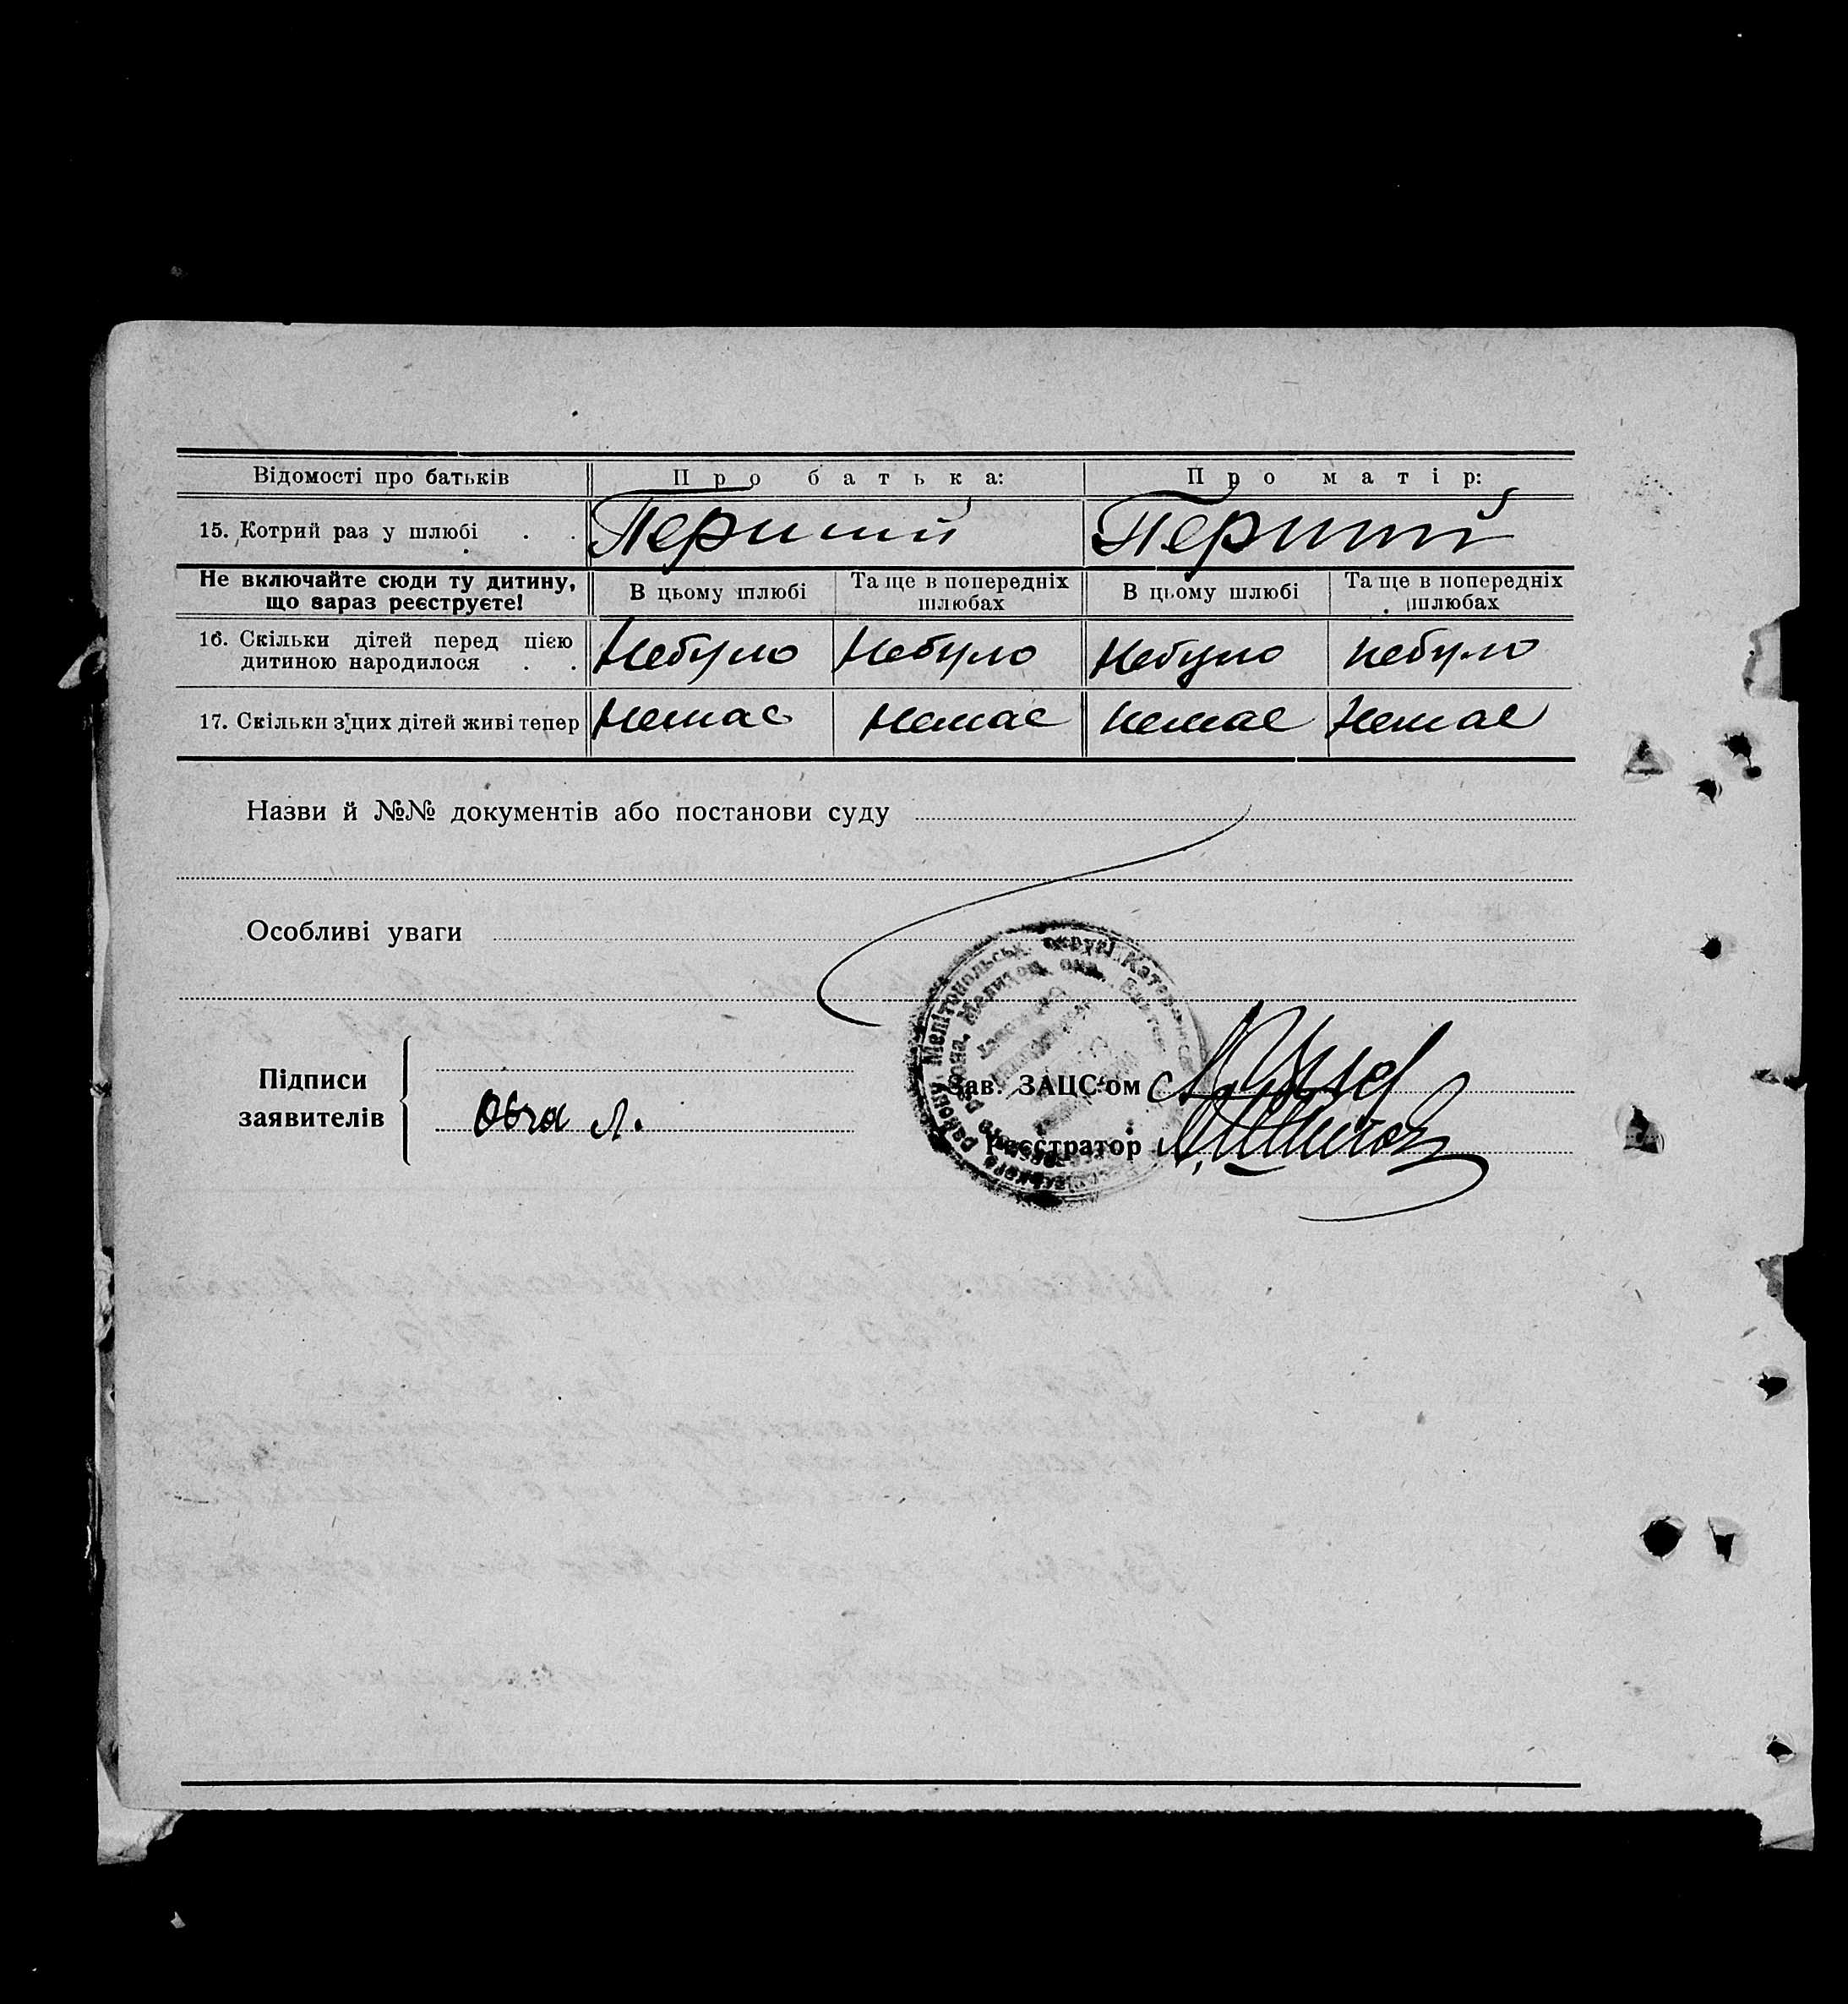 Відомості про батьків Про батька: Про матір:
15. Котрий раз у шлюбі . . Перший Перший
Не включайте сюди ту дитину, що зараз реєструєте! В цьому шлюбі Та ще в попередніх шлюбах В цьому шлюбі Та ще в попередніх шлюбах
16. Скільки дітей перед цією дитиною народилося . . Небуло Небуло Небуло небуло
17. Скільки з цих дітей живі тепер Немає Немає Немає Немає
Назви й №№ документів або постанови суду
Особливі уваги
Підписи заявителів
Зав. ЗАЦС‘ом
Реєстратор